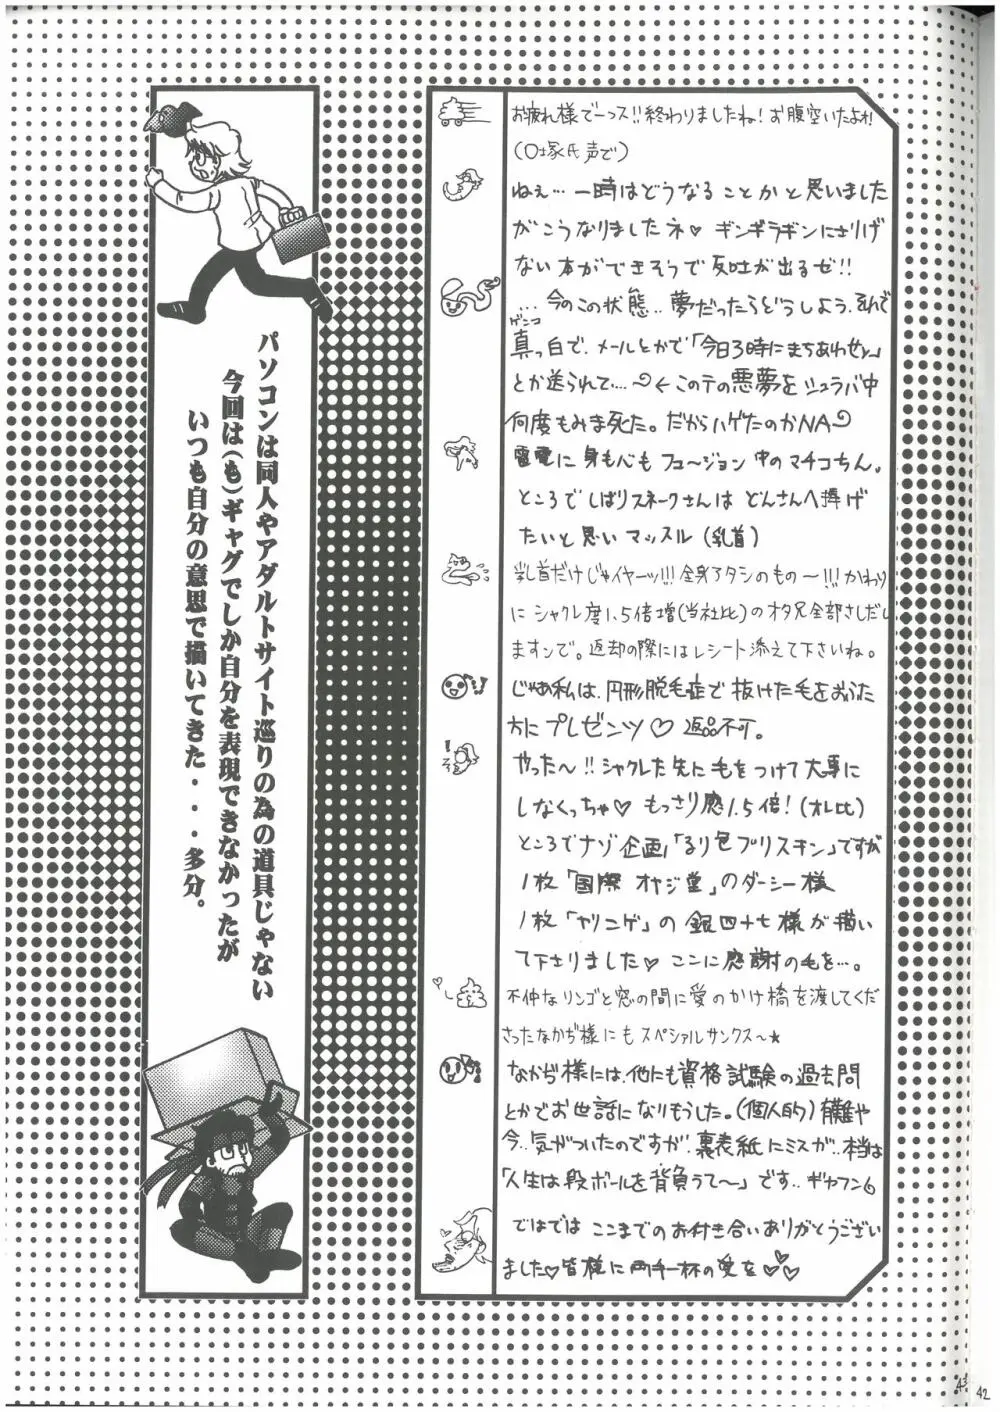 お疲れ様でーっス!!終わりましたね!お腹空いたよォ!
(口塚氏声で)
ねぇ…一時はどうなることかと思いました
がこうなりましたネ♡ギンギラギンにさりげ
ない本ができそうで反吐が出るゼ!!
…今のこの状態..夢だったらどうしよう.それで
ゲンコ
真っ白で.メールとかで「今日3時にまちあわせ♪」
とか送られて….←このテの悪夢をシュラバ中
何度もみま死た。だからハゲたのかNA
雷電に身も心もフュ〜ジョン中のマチコちん。
ところでしばりスネークさんはどんさんへ捧げ
たいと思いマッスル(乳首)
乳首だけじゃイヤーッ!!!全身アタシのもの〜!!!かわり
にシャクレ度1.5倍増(当社比)のオタ兄全部さしだし
ますンで。返却の際にはレシート添えて下さいね。
じゃあ私は.円形脱毛症で抜けた毛をおうた
方にプレゼンツ♡返品不可。
やった〜!!シャクレた先に毛をつけて大事に
しなくっちゃ♡もっさり感1.5倍!(オレ比)
ところでナゾ企画「るり色プリスキン」ですが
1枚「国際オヤジ堂」のダーシー様
1枚「ヤリニゲ」の銀四十七様が描い
て下さりました♡ここに感謝の毛を…。
不仲なリンゴと窓の間に愛のかけ橋を渡してくだ
さったなかぢ様にもスペシャルサンクス〜★
なかぢ様には.他にも資格試験の過去問
とかでお世話になりもうした。(個人的)有難や
今..気がついたのですが.裏表紙にミスが..本当は
「人生は段ボールを背負うて〜」です..ギャフン
ではではここまでのお付き合いありがとうござい
ました♡皆様に両手一杯の愛を♡♡♡
パソコンは同人やアダルトサイト巡りの為の道具じゃない
今回は(も)ギャグでしか自分を表現できなかったが
いつも自分の意思で描いてきた・・・多分。
43
42